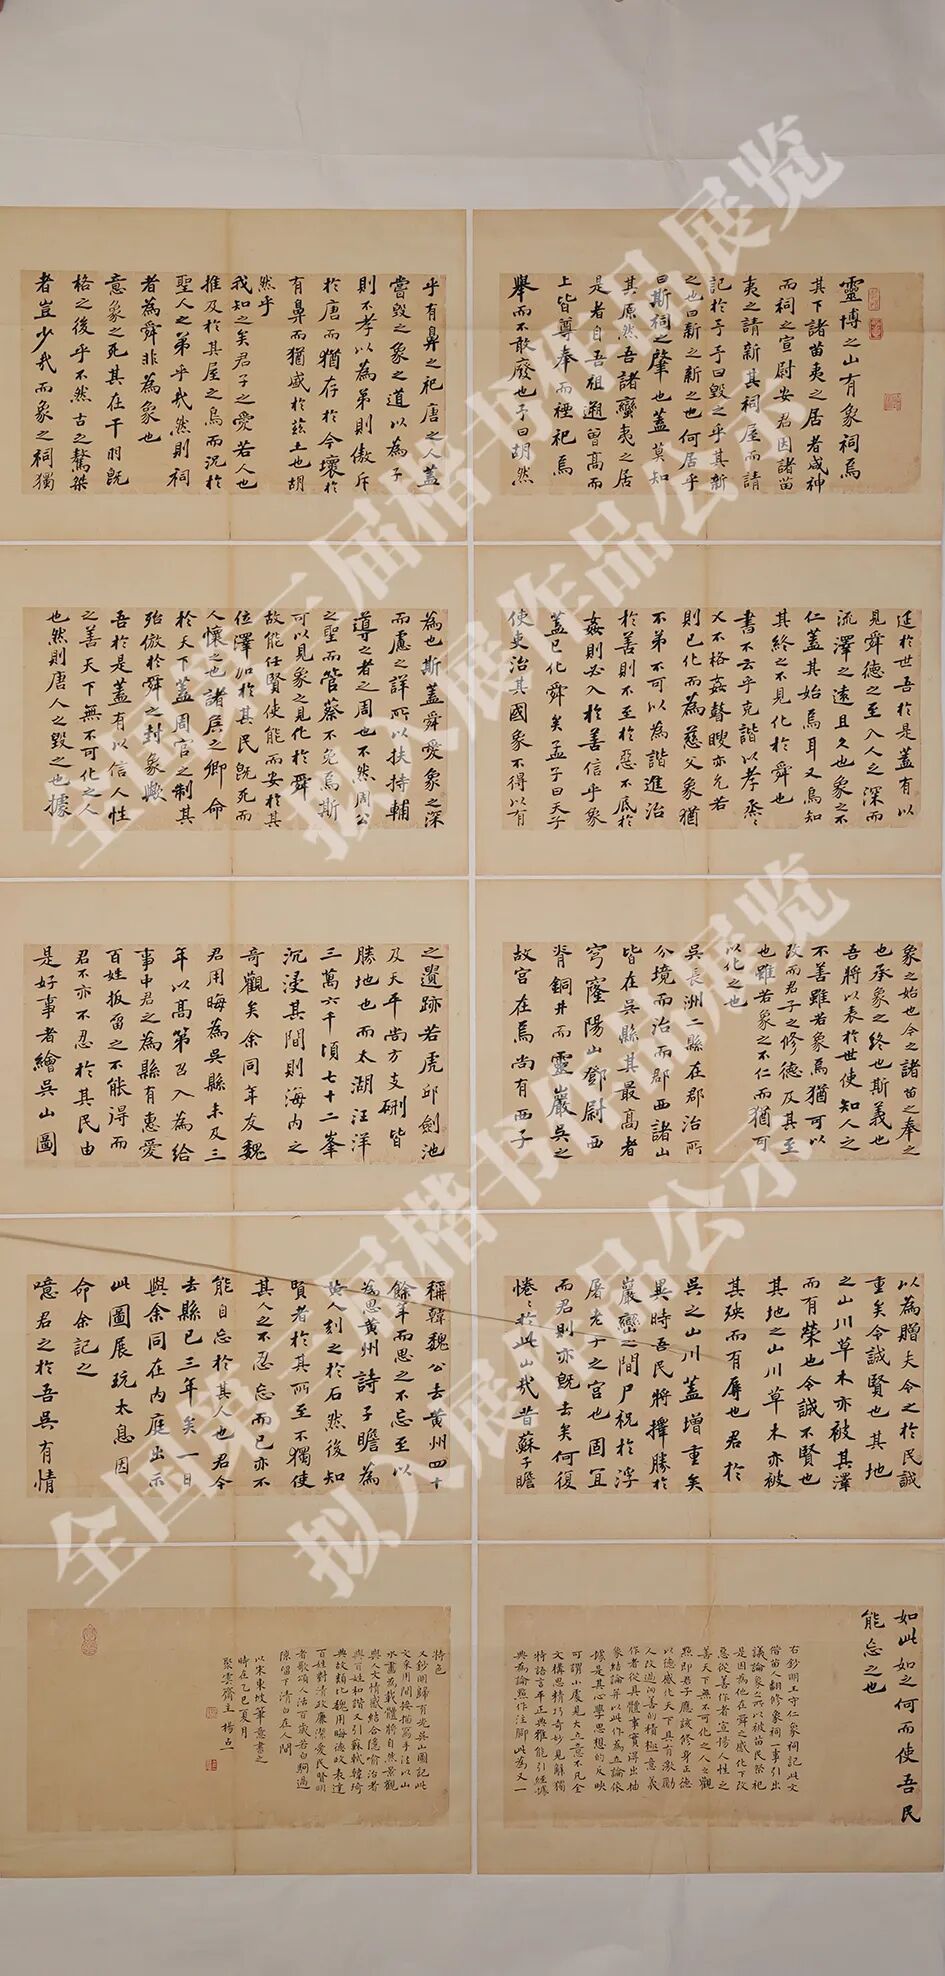 靈博之山有象祠焉
其下諸苗夷之居者咸神
而祠之宣尉安君因諸苗
夷之請新其祠屋而請
記於予予曰毀之乎其新
之也曰新之新之也何居乎
曰斯祠之肇也蓋莫知
其原然吾諸蠻夷之居
是者自吾祖遡曾高而
上皆尊奉而禋祀焉
舉而不敢廢也予曰胡然
乎有鼻之祀唐之人蓋
嘗毀之象之道以為子
則不孝以為弟則傲斥
於唐而猶存於今壞於
有鼻而猶盛於茲土也胡
然乎
我知之矣君子之愛若人也
推及於其屋之烏而況於
聖人之弟乎哉然則祠
者為舜非為象也
意象之死其在干羽既
格之後乎不然古之驁桀
者豈少哉而象之祠獨
延於世吾於是蓋有以
見舜德之至入人之深而
流澤之遠且久也象之不
仁蓋其始焉耳又烏知
其終之不見化於舜也
書不云乎克諧以孝烝〻
乂不格姦瞽瞍亦允若
則已化而為慈父象猶
不弟不可以為諧進治
於善則不至於惡不底於
姦則必入於善信乎象
蓋已化舜矣孟子曰天子
使吏治其國象不得以有
為也斯蓋舜愛象之深
而慮之詳所以扶持輔
導之者之周也不然周公
之聖而管蔡不免焉斯
可以見象之見化於舜
故能任賢使能而安於其
位澤加於其民既死而
人懷之也諸侯之卿命
於天下蓋周官之制其
殆倣於舜之封象歟
吾於是蓋有以信人性
之善天下無不可化之人
也然則唐人之毀之也據
象之始也今之諸苗之奉之
也承象之終也斯義也
吾將以表於世使知人之
不善雖若象焉猶可以
改而君子之修德及其至
也雖若象之不仁而猶可
以化之也
吳長洲二縣在郡治所
分境而治而郡西諸山
皆在吳縣其最高者
穹窿陽山鄧尉西
脊銅井而靈巖吳之
故宮在焉尚有西子
之遺跡若虎邱劍池
及天平尚方支硎皆
勝地也而太湖汪洋
三萬六千頃七十二峯
沉浸其間則海內之
奇觀矣余同年友魏
君用晦為吳縣未及三
年以高第召入為給
事中君之為縣有惠愛
百姓扳留之不能得而
君不亦不忍於其民由
是好事者繪吳山圖
以為贈夫令之於民誠
重矣令誠賢也其地
之山川草木亦被其澤
而有榮也令誠不賢也
其地之山川草木亦被
其殃而有辱也君於
吳之山川蓋增重矣
異時吾民將擇勝於
巖巒之間尸祝於浮
屠老子之宮也固宜
而君則亦既去矣何復
惓〻於此山哉昔蘇子瞻
稱韓魏公去黃州四十
餘年而思之不忘至以
為思黃州詩子瞻為
黃人刻之於石然後知
賢者於其所至不獨使
其人之不忍忘而已亦不
能自忘於其人也君今
去縣已三年矣一日
與余同在內庭出示
此圖展玩太息因
命余記之
噫君之於吾吳有情
如此如之何而使吾民
能忘之也
右鈔明王守仁象祠記此文
借苗人翻修象祠一事引出
議論象之所以被苗民祭祀
是因為他在舜之感化下改
惡從善作者宣揚人性之
善天下無不可化之人之觀
點即君子應該修身正德
以德感化天下具有激勵
人改過向善的積極意義
作者從具體事實得出抽
象結論并以此作為立論依
據是其心學思想的反映
可謂小處見大立意不凡全
文構思精巧奇妙見解獨
特語言平正典雅能引經據
典為論點作注腳此為又一
特色
又鈔明歸有光吳山圖記此
文采用間接描寫手法以山
水畫為載體將自然景觀
與人文情感結合隱喻治者
與百姓和諧又引蘇軾韓琦
典故類比魏用晦德政表達
百姓對清政廉潔愛民賢明
者歌頌人活百歲若白駒過
隙留下清白在人間
以宋東坡筆意書之
時在乙巳夏月
聚雲齋主楊
全国第三届楷书作品展览
拟入展作品公示
全国第三届楷书作品展览
拟入展作品公示